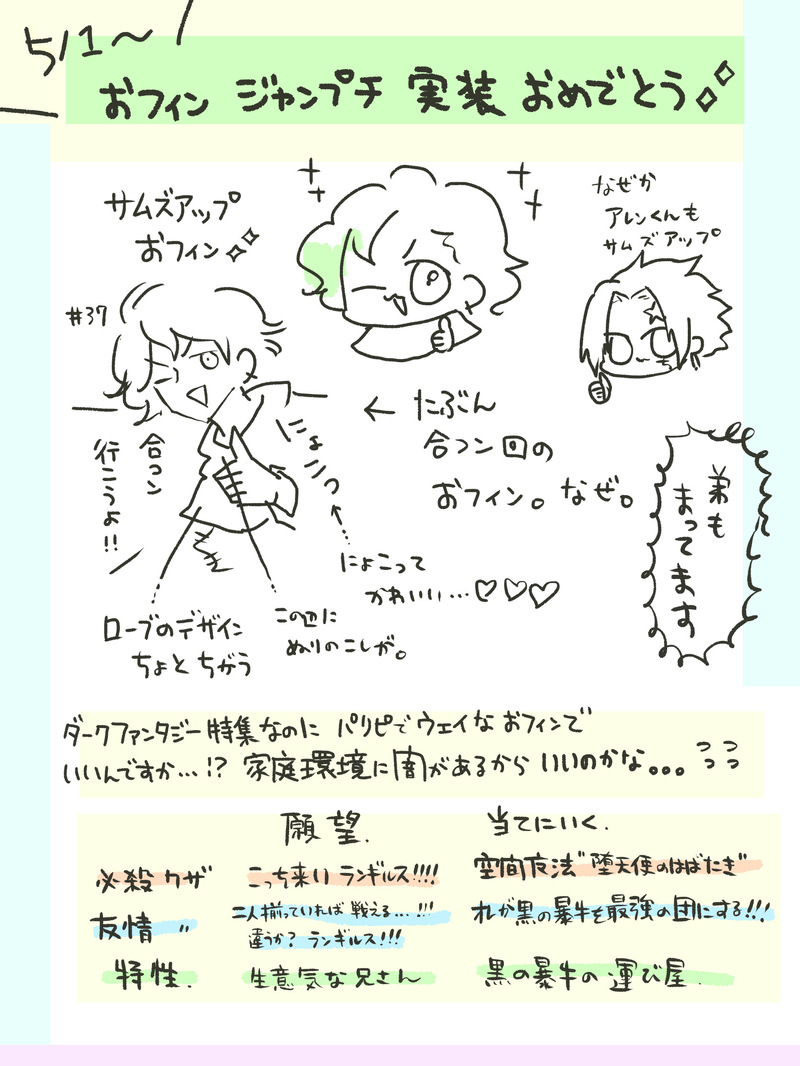 5/1〜
おフィン ジャンプチ 実装 おめでとう
サムズアップ
おフィン
なぜか
アレンくんも
サムズアップ
#37
合コン
行こうよ!!
← たぶん
合コン回の
おフィン。なぜ。
にょこっ
にょこって
かわいい…♡♡♡
弟も
まってます
ローブのデザイン
ちょとちがう
この辺に
ぬりのこしが。
ダークファンタジー特集なのに パリピでウェイな おフィンで
いいんですか…!? 家庭環境に闇があるから いいのかな。。。
願望.
当てにいく.
必殺ワザ
こっち来い ランギルス!!!!
空間魔法"堕天使のはばたき"
友情 〃
二人揃っていれば 戦える…!!!
違うか? ランギルス!!!
オレが黒の暴牛を最強の団にする!!!
特性.
生意気な兄さん
黒の暴牛の運び屋.